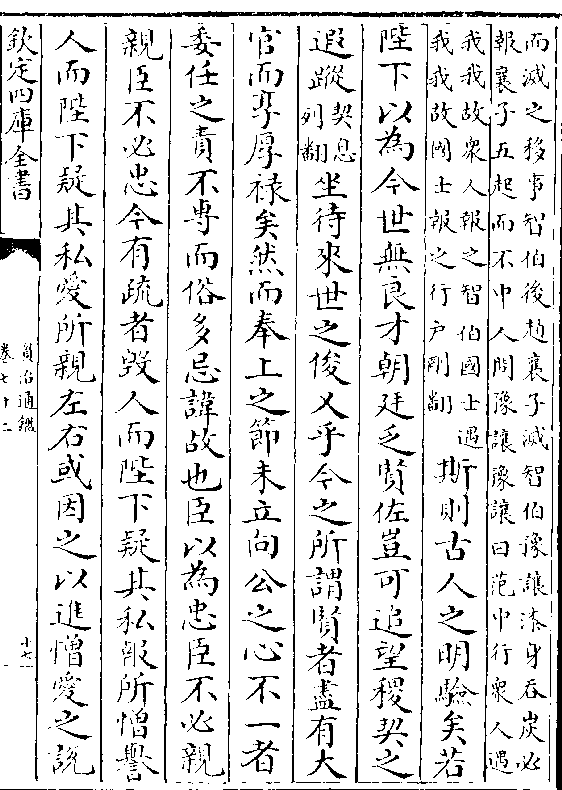 而滅之移事智伯後趙襄子滅智伯豫讓漆身吞炭必
報襄子五起而不中人問豫讓豫讓曰范中行衆人遇
我我故衆人報之智伯國士遇
我我故國士報之行户剛翻
斯則古人之明驗矣若
陛下以為今世無良才朝廷乏賢佐豈可追望稷契之
遐蹤契息列翻坐待來世之俊乂乎今之所謂賢者盡有大
官而享厚禄矣然而奉上之節未立向公之心不一者
委任之責不專而俗多忌諱故也臣以為忠臣不必親
親臣不必忠今有疏者毁人而陛下疑其私報所憎譽
人而陛下疑其私愛所親左右或因之以進憎愛之説
欽定四庫全書
資治通鑑
卷七十二
十七